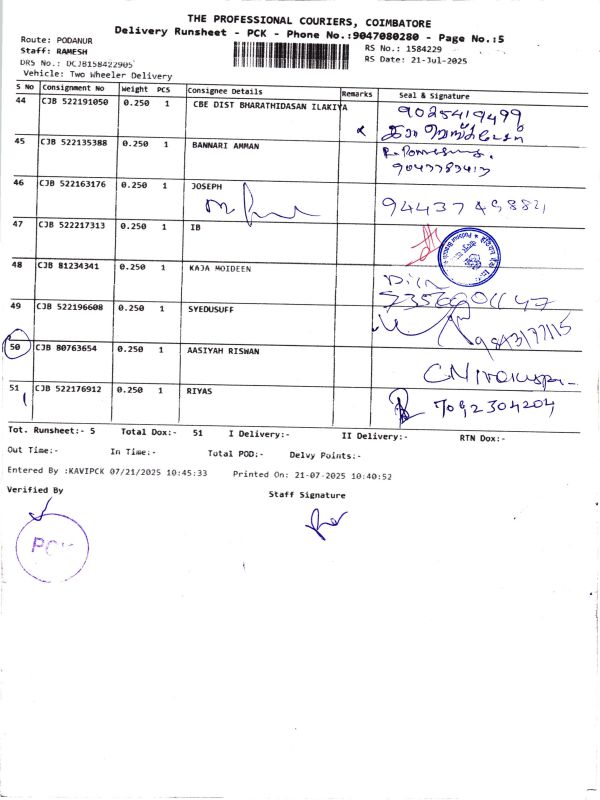 THE PROFESSIONAL COURIERS, COIMBATORE
Delivery Runsheet - PCK - Phone No.:9047080280 - Page No.:5
Route: PODANUR
RS No.: 1584229
Staff: RAMESH
RS Date: 21-Jul-2025
DRS No.: DCJB158422905
Vehicle: Two Wheeler Delivery
S No Consignment No Weight PCS Consignee Details Remarks Seal & Signature
44 CJB 522191050 0.250 1 CBE DIST BHARATHIDASAN ILAKIYA 9025419499
45 CJB 522135388 0.250 1 BANNARI AMMAN
46 CJB 522163176 0.250 1 JOSEPH
47 CJB 522217313 0.250 1 IB
48 CJB 81234341 0.250 1 KAJA MOIDEEN
49 CJB 522196608 0.250 1 SYEDUSUFF
50 CJB 80763654 0.250 1 AASIYAH RISWAN
51 CJB 522176912 0.250 1 RIYAS 7092304204
Tot. Runsheet:- 5 Total Dox:- 51 I Delivery:- II Delivery:- RTN Dox:-
Out Time:- In Time:- Total POD:- Delvy Points:-
Entered By :KAVIPCK 07/21/2025 10:45:33 Printed On: 21-07-2025 10:40:52
Verified By
Staff Signature
PCK